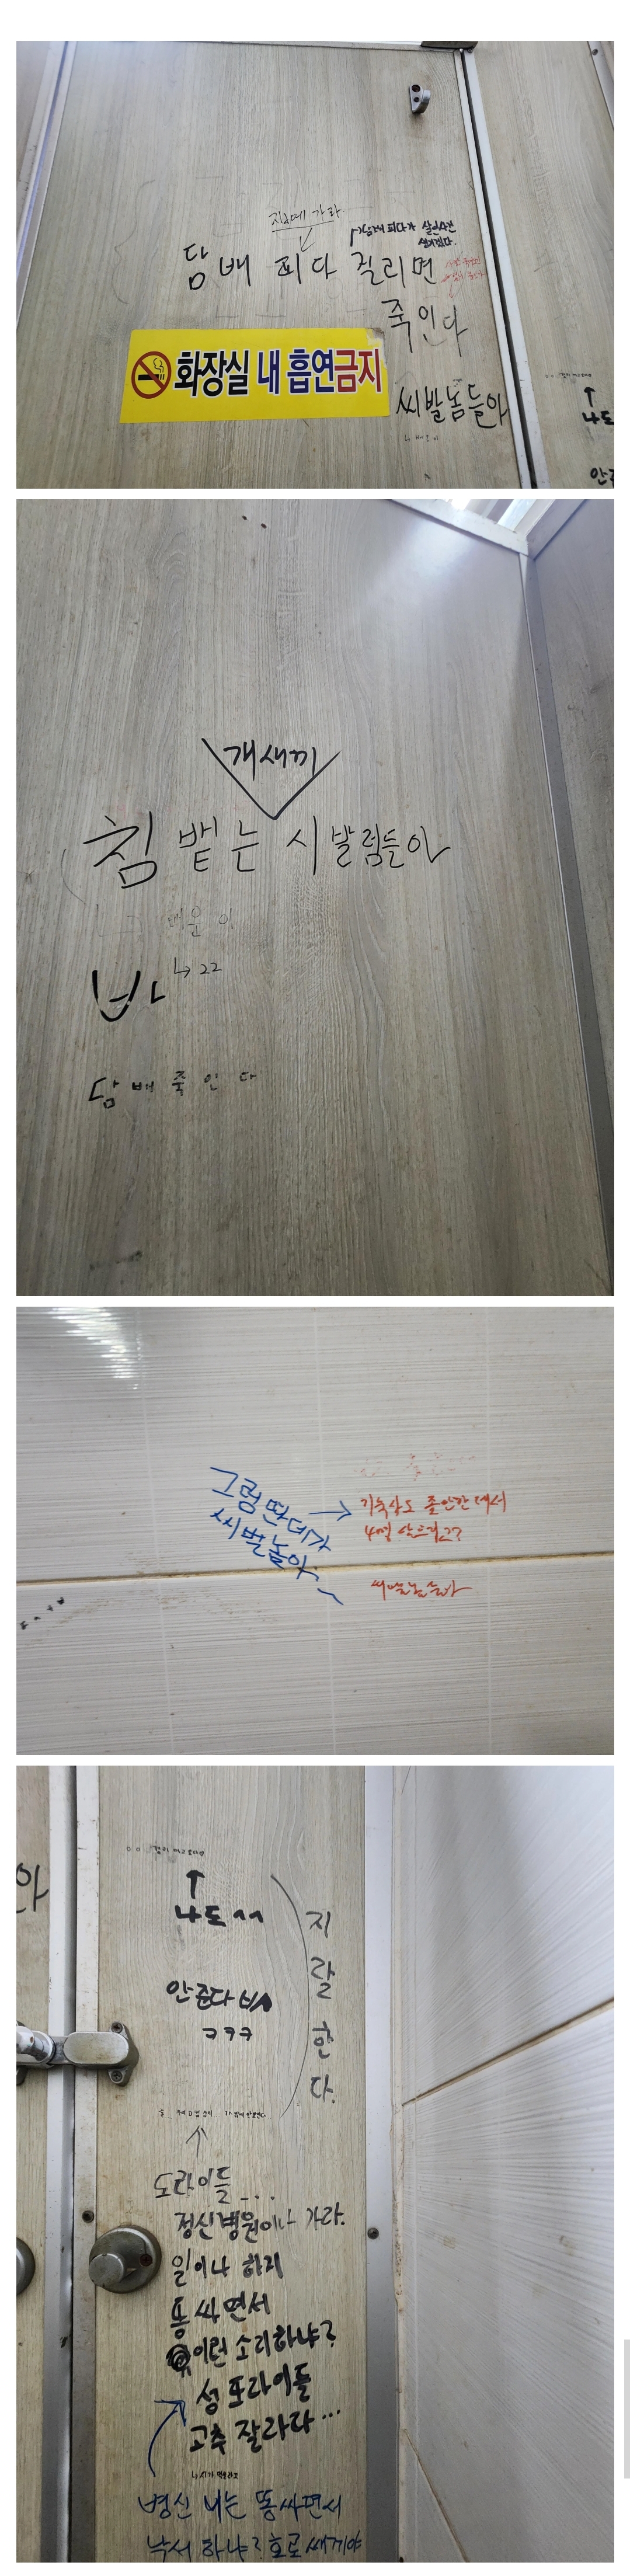 집에 가라
담배 피다 걸리면
죽인다
화장실 내 흡연금지
씨발놈들아
나도
개새끼
침 뱉는 시발럼들아
배운 이
↳ 22
바
담배 죽인다
그럼 딴데가
씨벌놈아~
→
기숙사도 좁안칸에서
4명
씨벌놈들아
↑
나도 ^^
지랄한다.
안준다 ㅂㅅ
ㅋㅋㅋ
도라이들...
정신병원이나 가라.
일이나 하지
똥 싸면서
이런 소리하냐?
성 또라이들
고추 잘라라...
병신 너는 똥싸면서
낙서 하냐? 호로쌔끼야